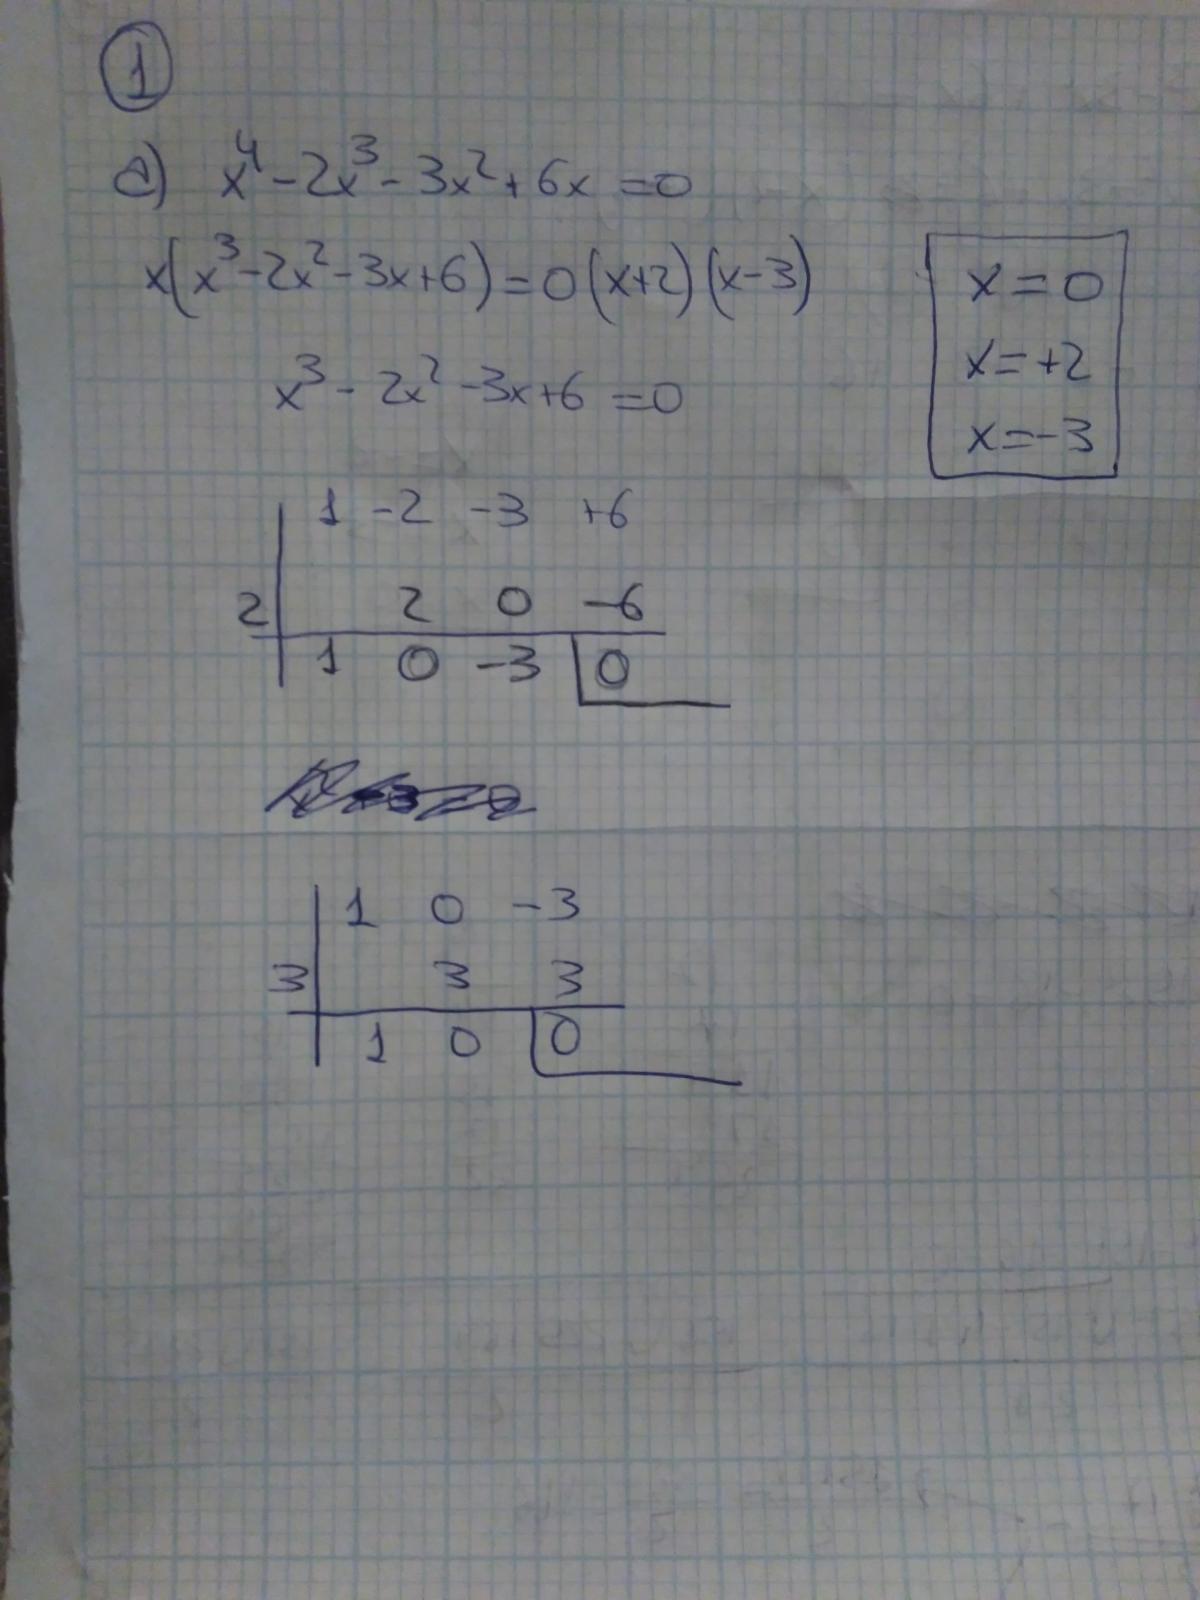 1
a) x⁴-2x³-3x²+6x=0
x(x³-2x²-3x+6)=0(x+2)(x-3)
x³-2x²-3x+6=0
x=0
x=+2
x=-3
1 -2 -3 +6
2 2 0 -6
1 0 -3 0
1 0 -3
3 3 3
1 0 0